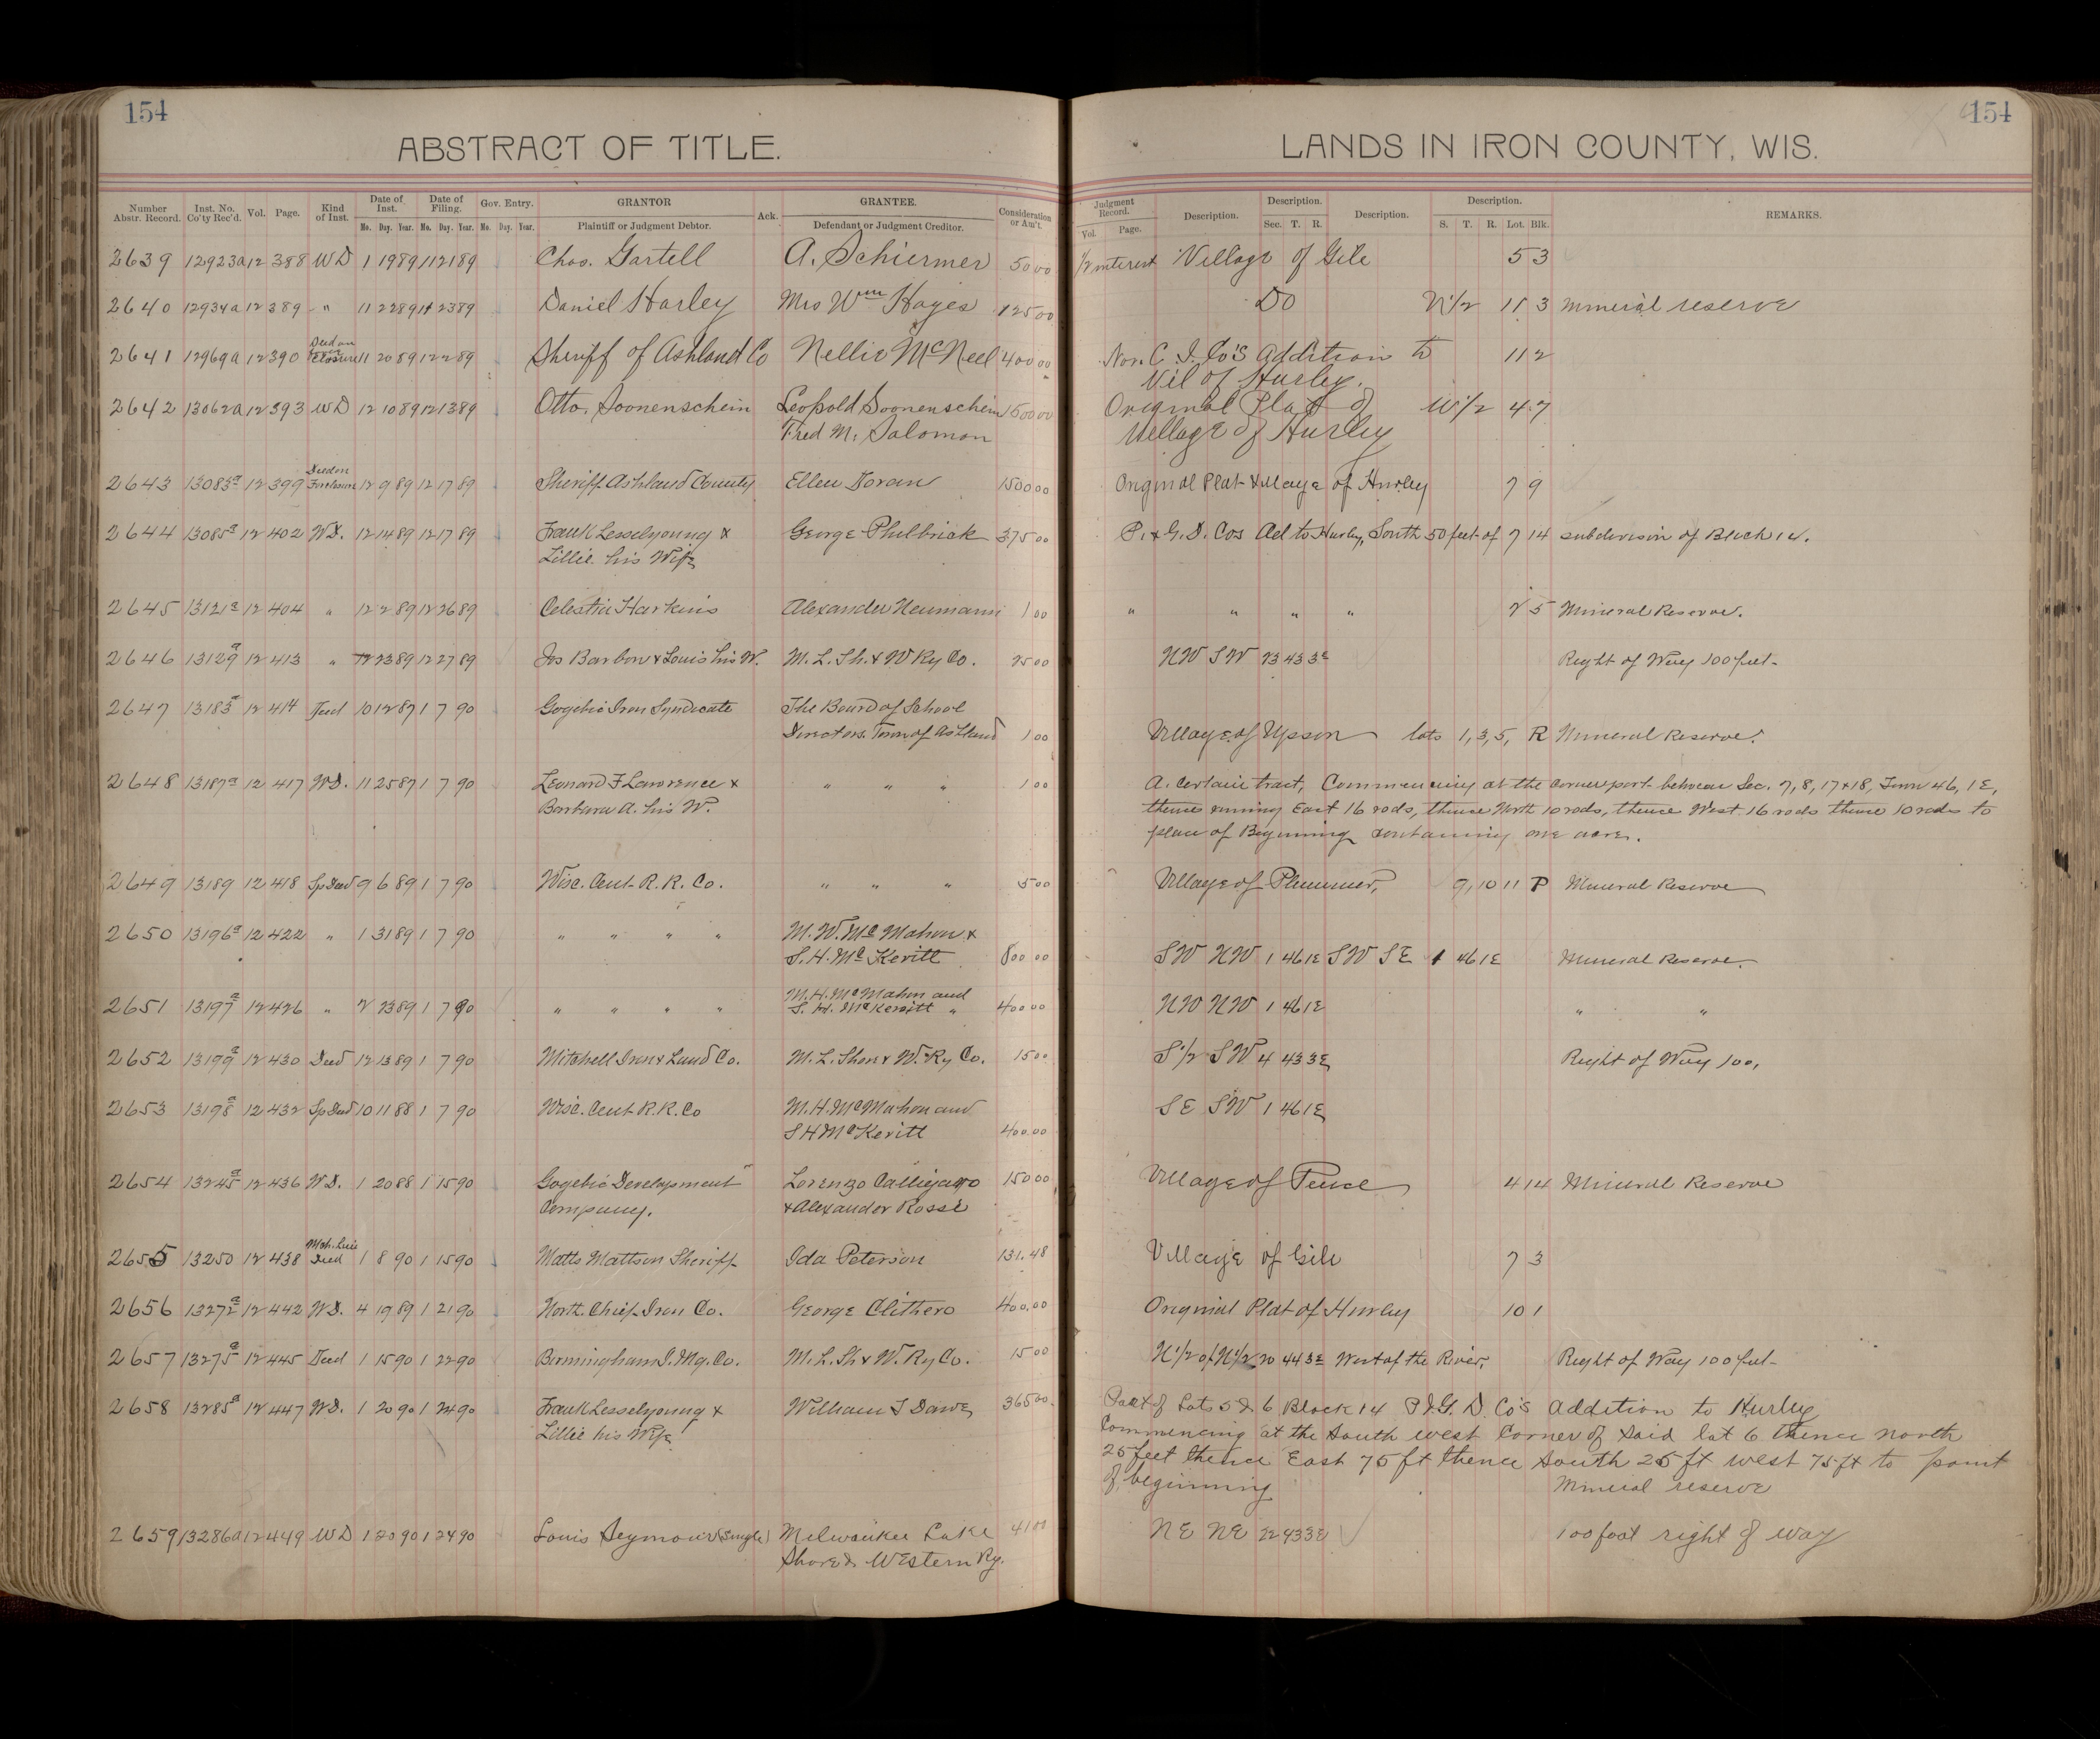 154
154
ABSTRACT OF TITLE.
LANDS IN IRON COUNTY, WIS.
Number Abstr. Record. Inst. No. Co'ty Rec'd. Vol. Page. Kind of Inst. Date of Inst. Mo. Day. Year. Date of Filing. Mo. Day. Year. Gov. Entry. Mo. Day. Year. GRANTOR Plaintiff or Judgment Debtor. Ack. GRANTEE. Defendant or Judgment Creditor. Consideration or Am't. Judgment Record. Vol. Page. Description. Description. Sec. T. R. Description. Description. S. T. R. Lot. Blk. REMARKS.
2639 12923a 12 388 WD 1 19 89 11 21 89 Chas. Gartell A. Schiermer 50 00 1/2 interest Village of Gile 5 3
2640 12934a 12 389 " 11 22 89 11 23 89 Daniel Harley Mrs Wm Hayes 125 00 DO N 1/2 11 3 mineral reserve
2641 12969a 12 390 Deed on Foreclosure 11 20 89 12 2 89 Sheriff of Ashland Co Nellie McNeel 400 00 Nor. C. I. Co's Addition to 11 2
Vil of Hurley.
2642 13062a 12 393 WD 12 10 89 12 13 89 Otto, Soonenschein Leopold Soonenschein 1500 00 Original Plat of W 1/2 4 7
Fred M. Salomon Village of Hurley
2643 13083a 12 399 Deed on Foreclosure 12 9 89 12 17 89 Sheriff Ashland County Ellen Doran 1500 00 Original Plat Village of Hurley 7 9
2644 13085a 12 402 WD. 12 14 89 12 17 89 Frank Lesselyoung & George Philbrick 375 00 P. & G. D. Cos Ad to Hurley, South 50 feet of 7 14 subdivision of Block 14.
Lillie his Wife
2645 13121a 12 404 " 12 2 89 12 26 89 Celestia Harkins Alexander Neumann 1 00 " " " " 2 5 Mineral Reserve.
2646 13129a 12 413 " 12 23 89 12 27 89 Jos Barbon & Louis his W. M. L. Sh. & W Ry Co. 25 00 NW SW 23 43 3E Right of Way 100 feet
2647 13183a 12 414 Deed 10 12 87 1 7 90 Gogebic Iron Syndicate The Board of School
Directors, Town of Ashland 1 00 Village of Upson lots 1, 3, 5, R Mineral Reserve.
2648 13187a 12 417 WD. 11 25 87 1 7 90 Leonard F Lawrence & " " " 1 00 A. Certain tract, Commencing at the corner post between Sec. 7, 8, 17 & 18, Town 46, 1E,
Barbara A. his W. thence running East 16 rods, thence North 10 rods, thence West 16 rods thence 10 rods to
place of Beginning containing one acre.
2649 13189 12 418 Sp Deed 9 6 89 1 7 90 Wisc. Cent R. R. Co. " " " 5 00 Village of Plummer, 9, 10 11 P Mineral Reserve
2650 13196a 12 422 " 1 31 89 1 7 90 " " " " M. W. McMahon &
S. H. McKevitt 800 00 SW NW 1 46 1E SW SE 1 46 1E Mineral Reserve.
2651 13197a 12 426 " 2 23 89 1 7 90 " " " " M. H. McMahon and
S. H. McKevitt " 400 00 NW NW 1 46 1E " "
2652 13199a 12 430 Deed 12 13 89 1 7 90 Mitchell Iron & Land Co. M. L. Shore & W. Ry Co. 15 00 S 1/2 SW 4 43 3E Right of Way 100,
2653 13198a 12 432 Sp Deed 10 11 88 1 7 90 Wisc. Cent R. R. Co M. H. McMahon and SE SW 1 46 1E
S H McKevitt 400.00
2654 13245a 12 436 WD. 1 20 88 1 15 90 Gogebic Development Lorenzo Calligaro 150 00 Village of Pence 4 14 Mineral Reserve
Company. & Alexander Rossi
2655 13250 12 438 Mch. Lien Deed 1 8 90 1 15 90 Matts Mattson Sheriff Ida Peterson 131.48 Village of Gile 7 3
2656 13272a 12 442 WD. 4 19 89 1 21 90 North. Chief Iron Co. George Clithero 400.00 Original Plat of Hurley 10 1
2657 13275a 12 445 Deed 1 15 90 1 22 90 Birmingham I. Mg. Co. M. L. Sh & W. Ry Co. 15 00 N 1/2 of N 1/2 20 44 3E West of the River, Right of Way 100 feet
2658 13285a 12 447 WD. 1 20 90 1 24 90 Frank Lesselyoung & William T Dawe 365 00 Part of Lots 5 & 6 Block 14 P & G. D. Co's Addition to Hurley
Lillie his Wife Commencing at the South west Corner of Said lot 6 thence north
25 feet thence East 75 ft thence South 25 ft west 75 ft to point
of beginning Mineral reserve
2659 13286a 12 449 WD 1 20 90 1 24 90 Louis Seymour (Single) Milwaukee Lake 41 00 NE NE 22 43 3E 100 foot right of way
Shore & Western Ry.